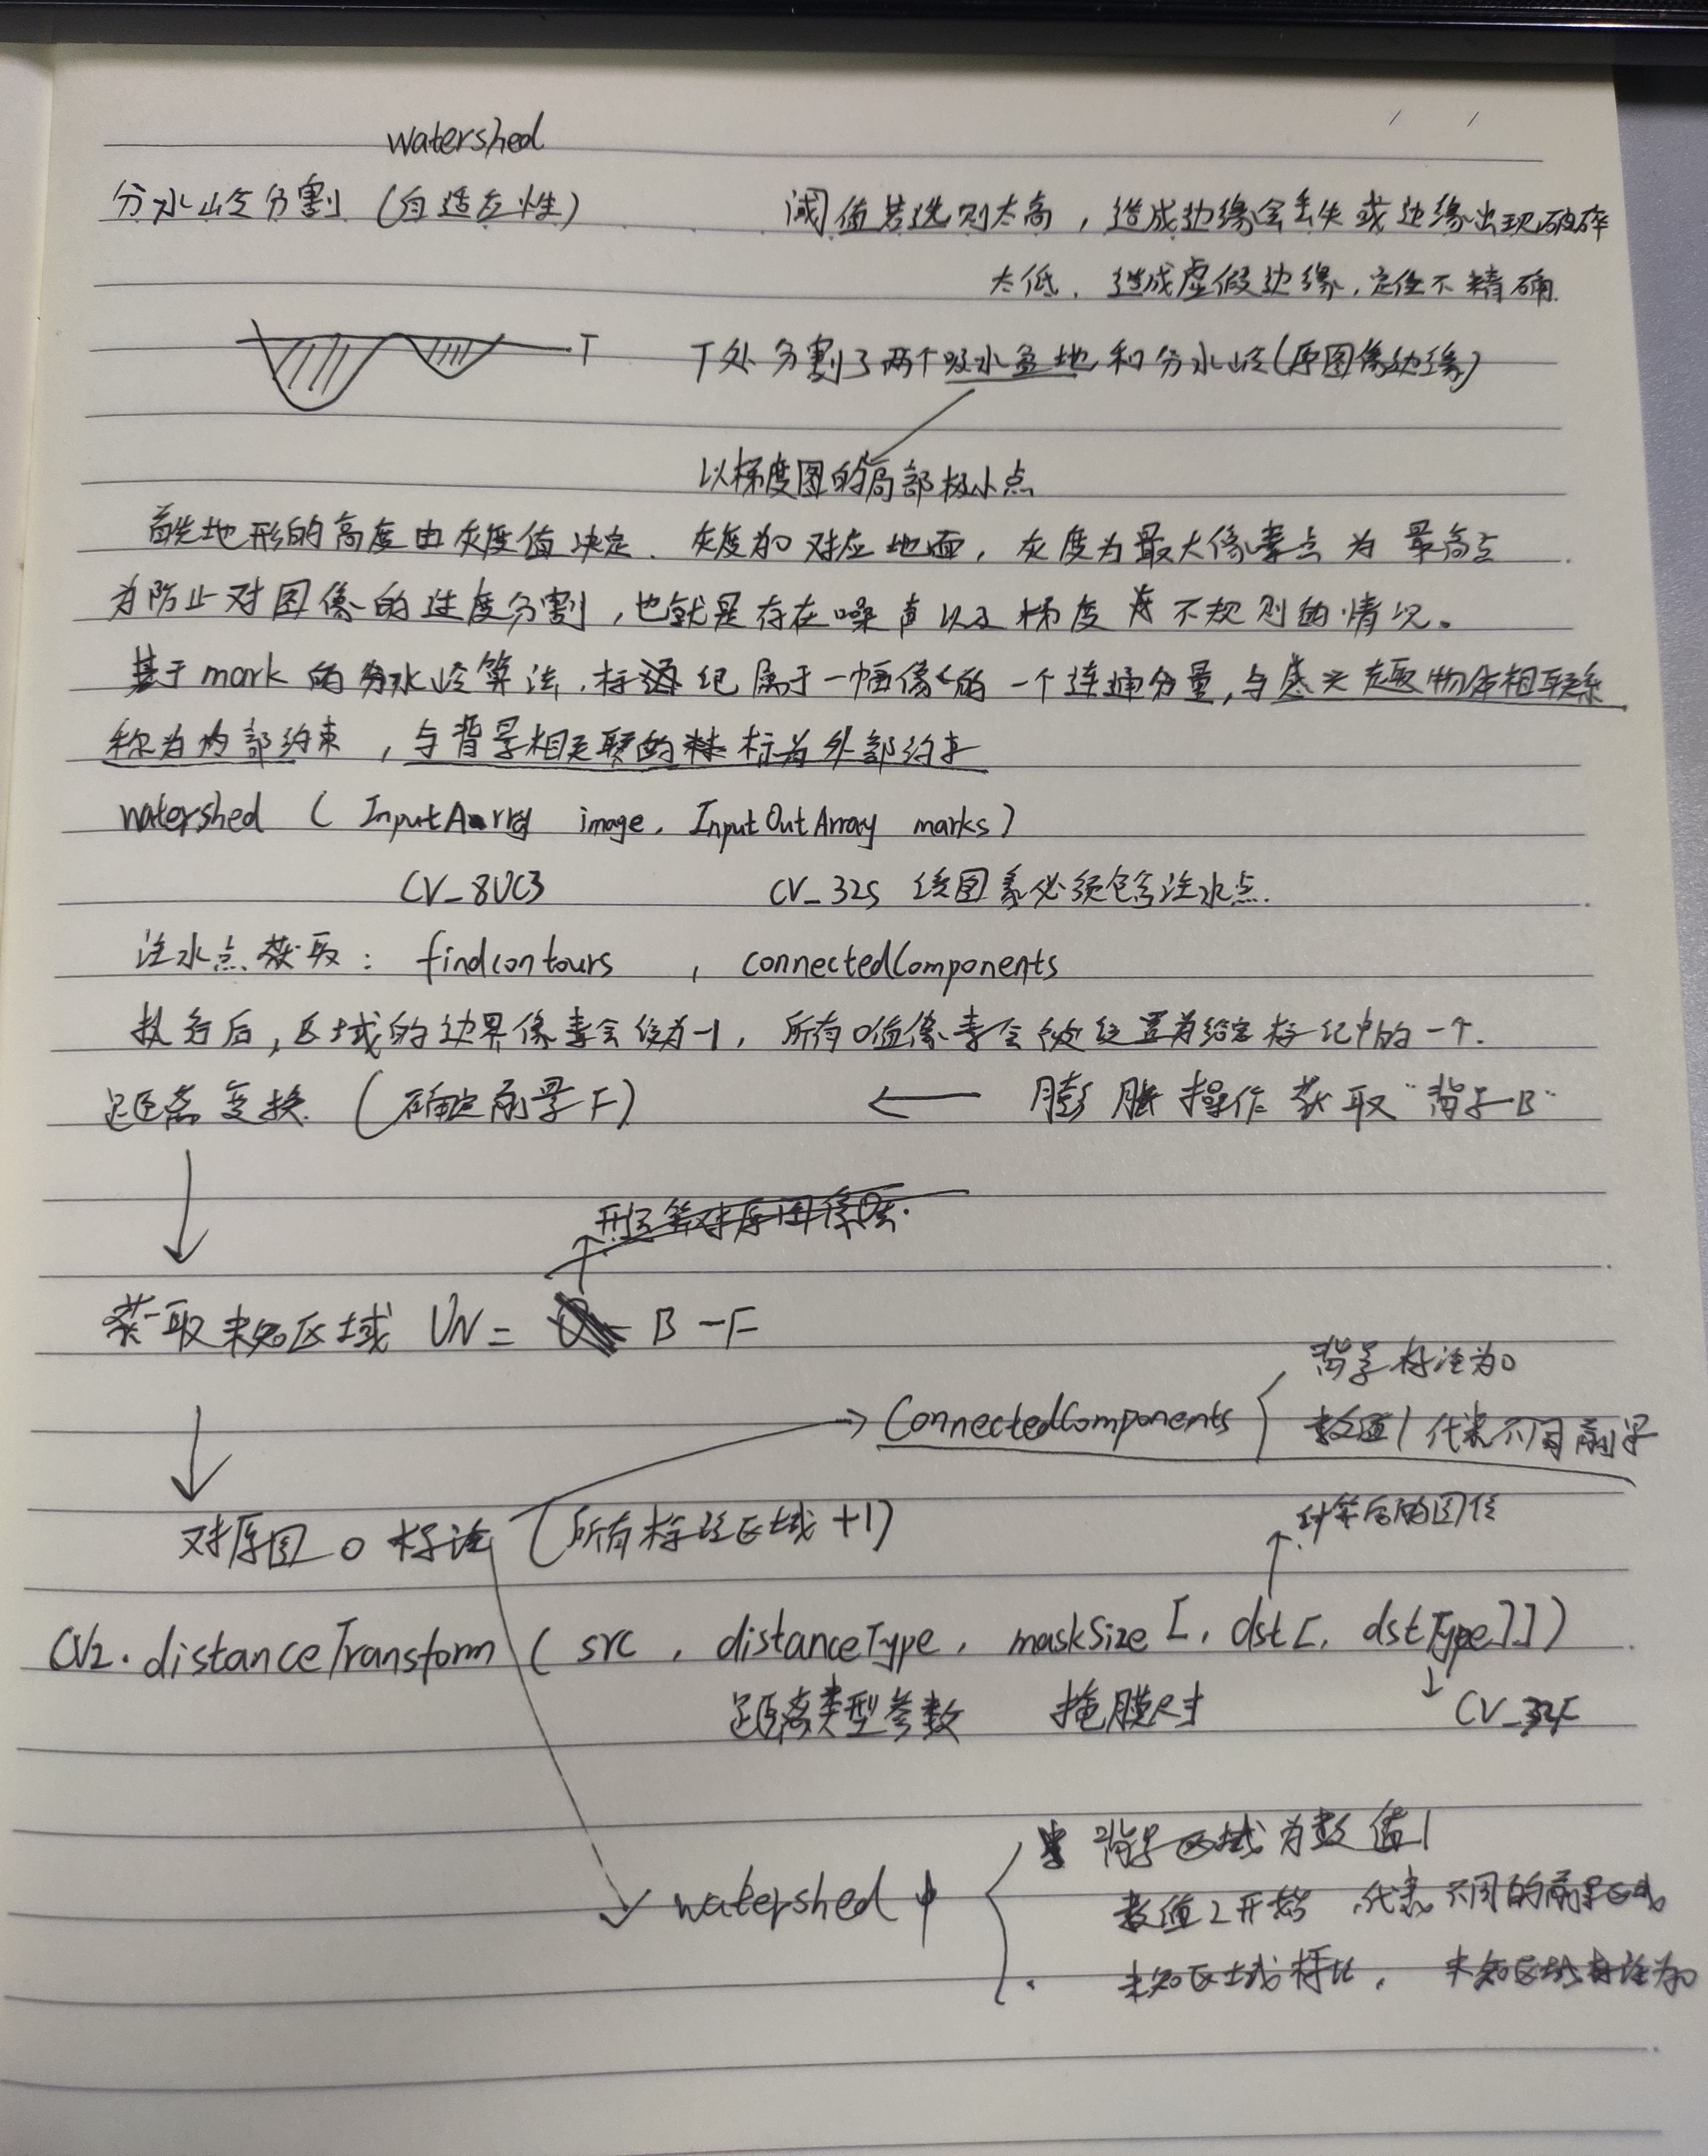 watershed
分水岭分割 (自适应性) 阈值若选则太高，造成边缘会丢失或边缘出现破碎
太低，造成虚假边缘，定位不精确.
T T处分割了两个吸水盆地和分水岭(原图像边缘)
以梯度图的局部极小点
首先地形的高度由灰度值决定. 灰度为0对应地面，灰度为最大像素点为最高点
为防止对图像的过度分割，也就是存在噪声以及梯度 不规则的情况。
基于mark的分水岭算法，标记属于一幅像的一个连通分量，与感兴趣物体相联系
称为内部约束，与背景相关联的 标为外部约束
watershed ( InputArray image, InputOutArray marks)
CV_8UC3 CV_32S 该图象必须包含注水点.
注水点获取: findcontours , connectedComponents
执行后，区域的边界像素会设为-1, 所有0值像素会被设置为给定标记中的一个.
距离变换 (确定前景F) ← 膨胀操作获取"背景B"
获取未知区域 UN = B-F
ConnectedComponents 背景标注为0
数值1代表不同前景
对原图0标注 (所有标注区域+1)
计算后的图像
CV2.distanceTransform ( src , distanceType, maskSize [, dst [, dstType]])
距离类型参数 掩膜尺寸 CV_32F
watershed中 背景区域为数值1
数值2开始 代表不同的前景区域
未知区域标记, 未知区域标注为0